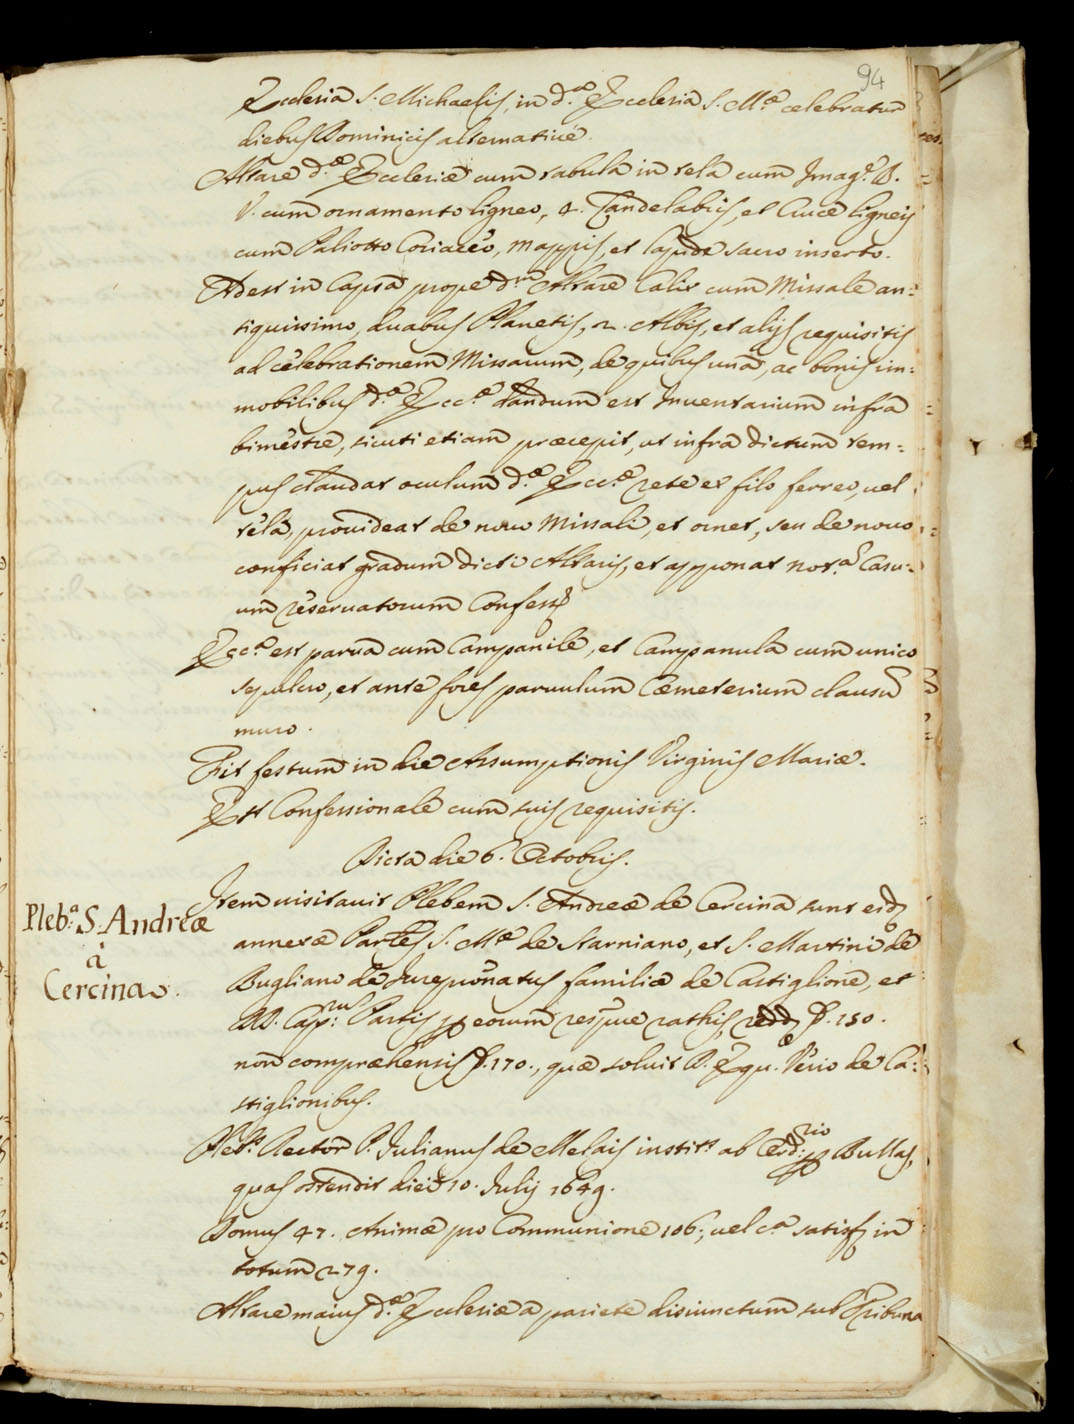 94
Ecclesia S. Michaelis, in d.ª Ecclesia S. M.ª celebratur
diebus Dominicis alternative.
Altare d.æ Ecclesiæ cum tabula in tela cum Imag.e B.
V. cum ornamento ligneo, 4. Candelabris, et Cruce ligneis
cum Paliotto Coriaceo, mappis, et lapide sacro inserto.
Adest in Capsa prope d.m Altare Calix cum Missale an:
tiquissimo, duabus Planetis, 2. Albis, et alijs requisitis
ad celebrationem Missarum, de quibus una, ac bonis im:
mobilibus d.æ Ecc.æ dandum est Inventarium infra
bimestre, sicuti etiam præcepit, ut infra dictum tem:
pus claudat oculum d.æ Ecc.æ rete ex filo ferreo, vel
tela, provideat de novo Missali, et ornet, seu de novo
conficiat gradum dicti Altaris, et apponat not.ª Casu:
um reservatorum Confess.
Ecc.ª est parva cum Campanile, et Campanula cum unico
sepulcro, et ante fores parvulum Cæmeterium clausū
muro.
Fit festum in die Assumptionis Virginis Mariæ.
Est Confessionale cum suis requisitis.
Dicta die 6. Octobris.
Pleb.ª S. Andreæ
à
Cercina.
Item visitavit Plebem S. Andreæ de Cercina sunt eid
annexæ S. M.æ de Starniano, et S. Martini de
Bugliano de Jurepronatus familiæ de Castiglione, et
Partis eorum ratis, 150.
non compræhensis 170., quæ solvit D. Equ. Verio de Ca:
stiglionibus.
Pleb. Rector P. Julianus de Melais instit.s ab Ord.rio Bullas,
quas ostendit die 10. Julij 1649.
Domus 47. Animæ pro Communione 106; vel c.ª satisf in
totum 279.
Altare maius d.æ Ecclesiæ a pariete disiunctum sub Tribuna